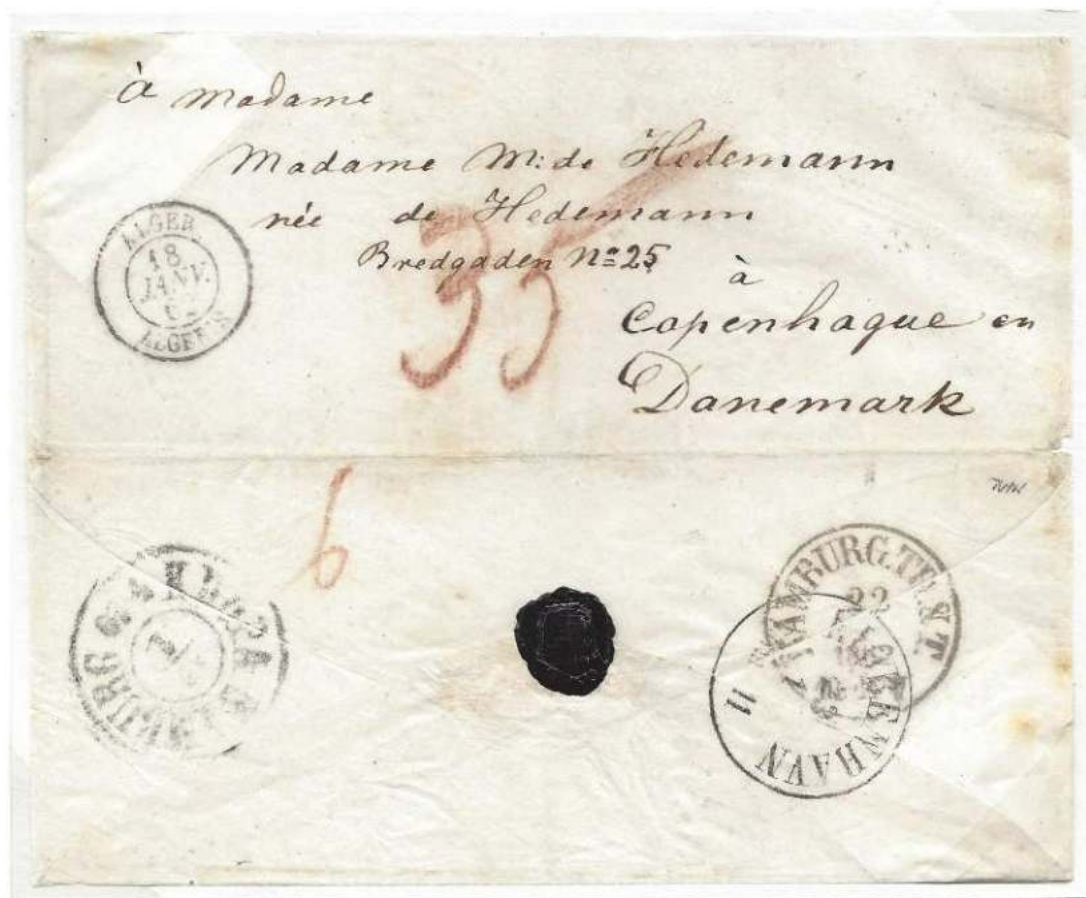 à Madame
Madame M: de Hedemann
née de Hedemann
Bredgaden No 25
à
Copenhague en
Danemark
35
ALGER
18
JANV.
6
HAMBURG
22
KJØBENHAVN
11